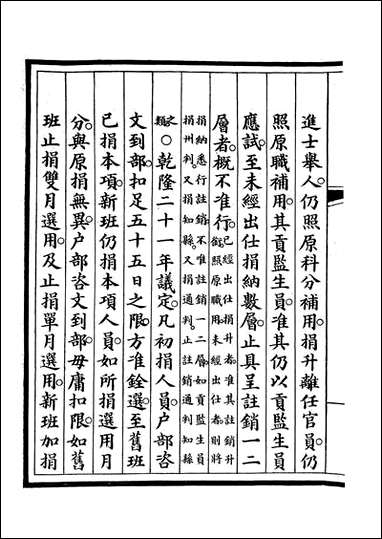 進士舉人。仍照原科分補用。捐升離任官員。仍
照原職補用。其貢監生員。准其仍以貢監生員
應試。至未經出仕捐納數層。止具呈註銷一二
層者。概不准行。
已經出仕捐升者。准其註銷升
銜照原職用。未經出仕者。則將
捐納悉行註銷。不唯註銷一二層。如貢監生員
捐州判。又捐知縣。又捐通判。止註銷通判知縣
之類
○乾隆二十一年議定。凡初捐人員。戶部咨
文到部。扣足五十五日之限。方准銓選。至舊班
已捐本項。新班仍捐本項人員。如所捐選用月
分。與原捐無異。戶部咨文到部。毋庸扣限。如舊
班止捐雙月選用。及止捐單月選用。新班加捐